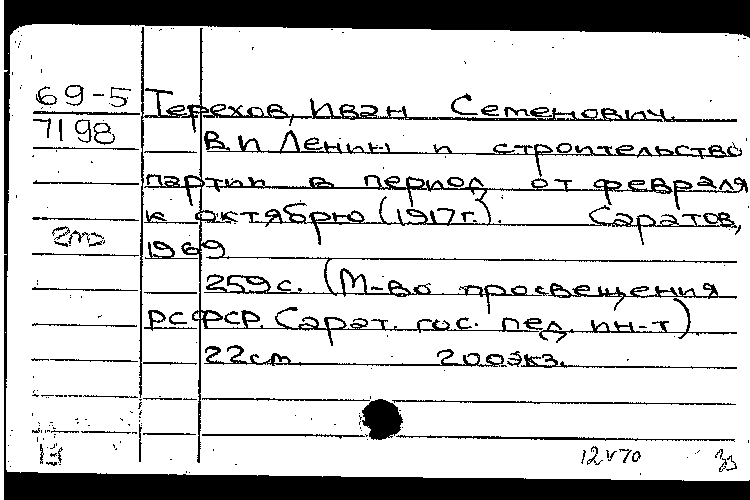 69-5 Терехов, Иван Семенович.
7198 В.И Ленин и строительство
партии в период от февраля
к октябрю (1917г.). Саратов,
1969
259с. (М-во просвещения
РСФСР. Сарат. гос. пед. ин-т).
22см 200экз.
12 V 70